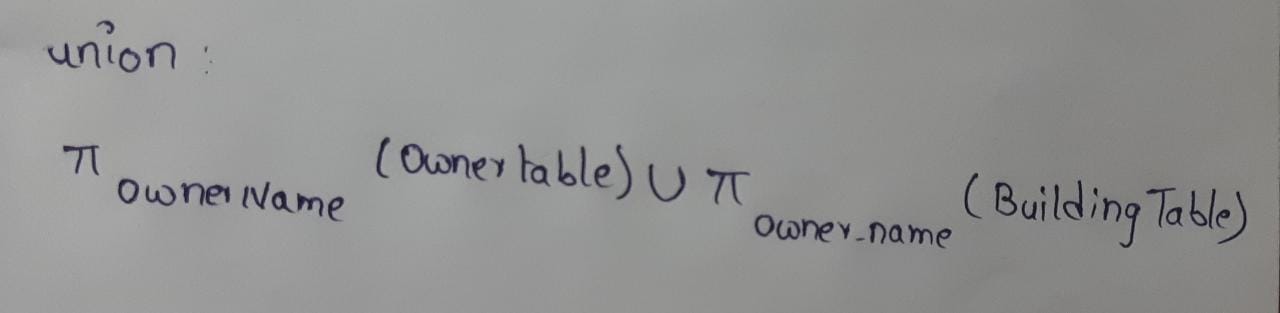 union :
π ownerName (Owner table) ∪ π owner_name (Building Table)